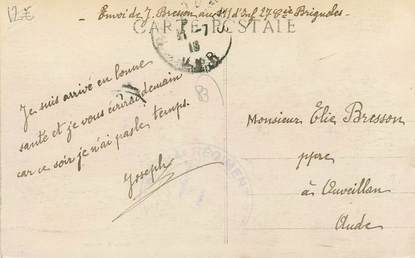 12€
Envoi de J. Bresson au d'Inf. 27 Cie Brignoles
CARTE POSTALE
Je suis arrivé en bonne
santé et je vous écrirai demain
car ce soir je n'ai pas le temps.
Joseph
Monsieur Elie Bresson
ppre
à Ouveillan
Aude